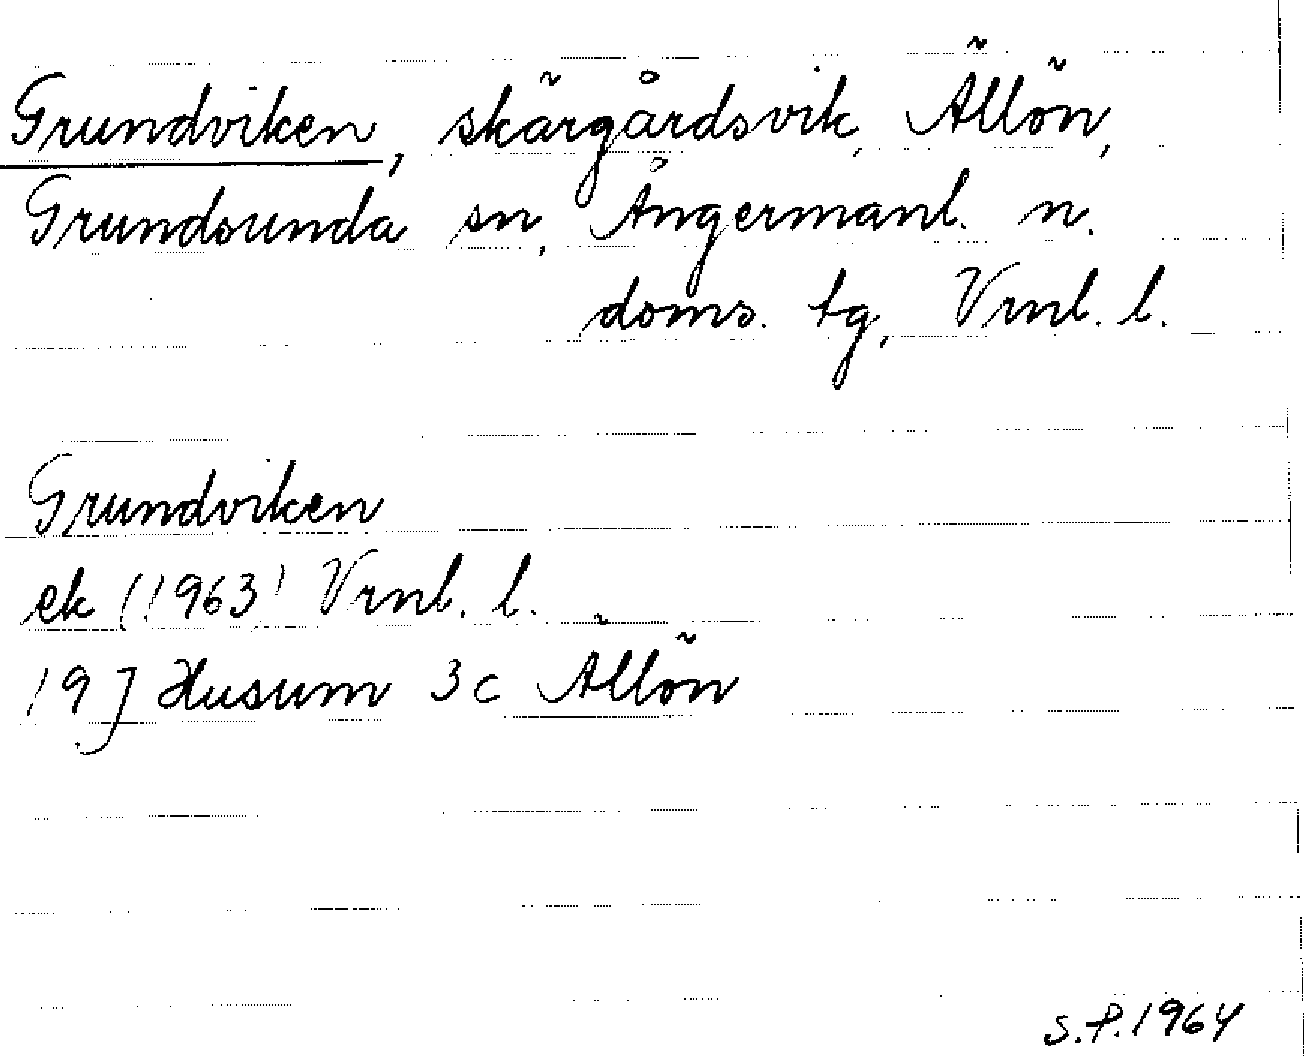 Grundviken, skärgårdsvik, Ällön,
Grundsunda sn, Ångermanl. n.
doms. tg, Vrnl. l.
Grundviken
ek (1963) Vrnl. l.
19J Husum 3c Ällön
S.P. 1964